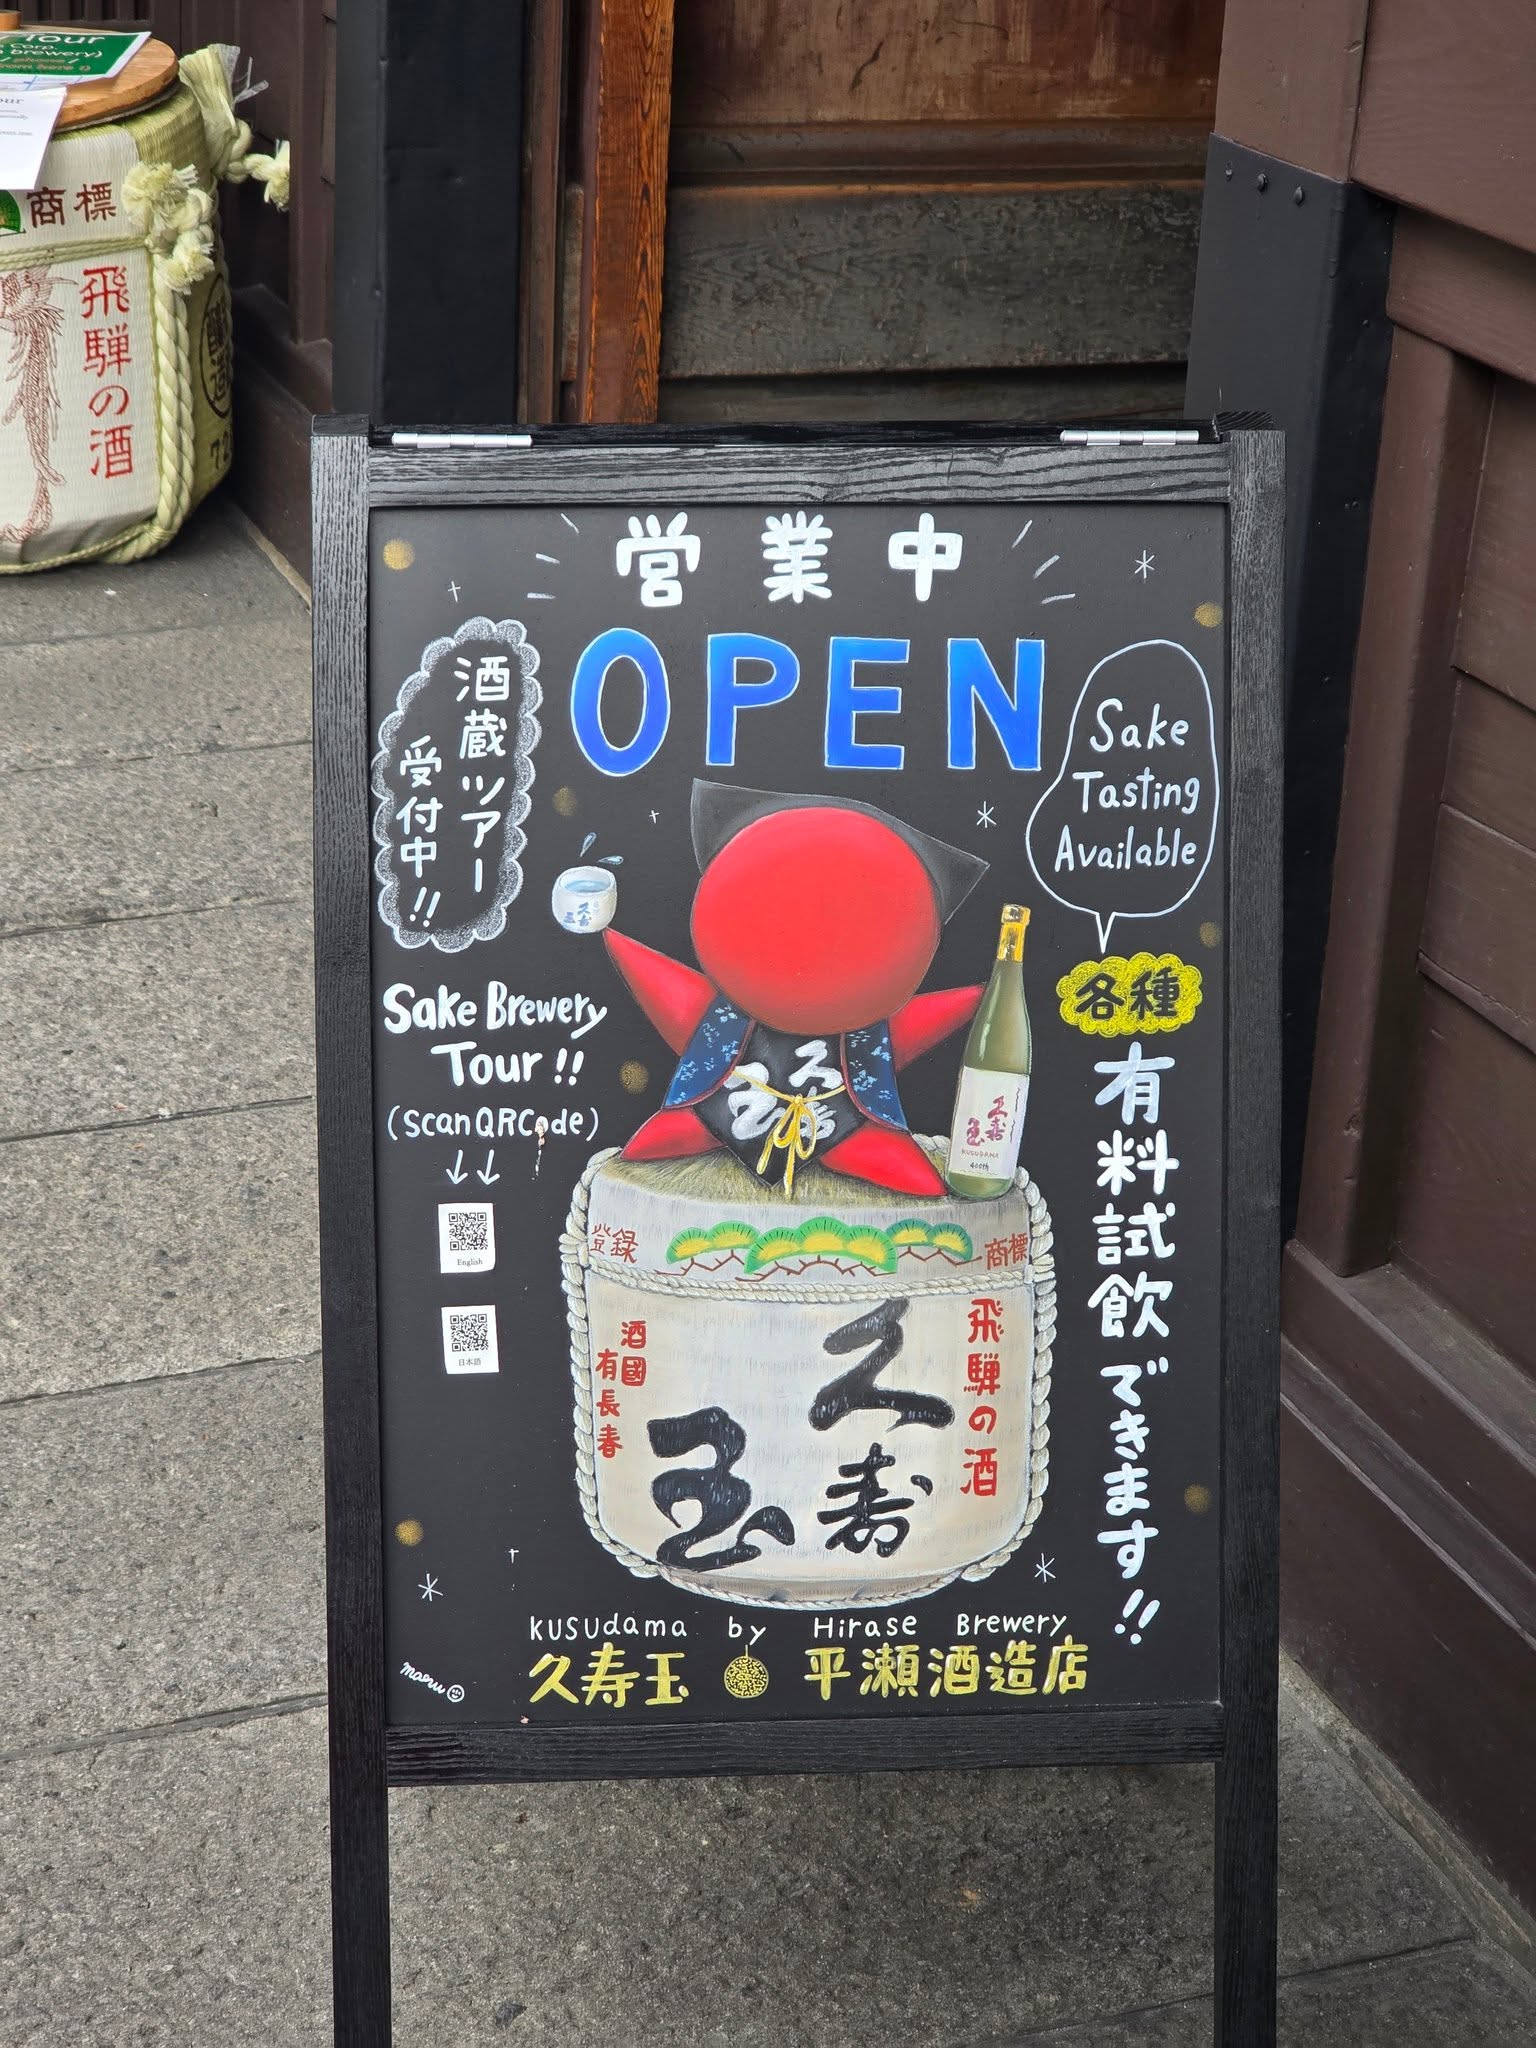 Tour
Corp.
brewery)
商標
飛騨の酒
営業中
OPEN
酒蔵ツアー
受付中!!
Sake
Tasting
Available
Sake Brewery
Tour!!
(Scan QR Code)
English
日本語
各種
有料試飲できます!!
久寿玉
久寿玉
久寿玉
KUSUDAMA
400th
登録
商標
飛騨の酒
久寿
玉
酒國
有長春
KUSUdama by Hirase Brewery
久寿玉 平瀬酒造店
maeru